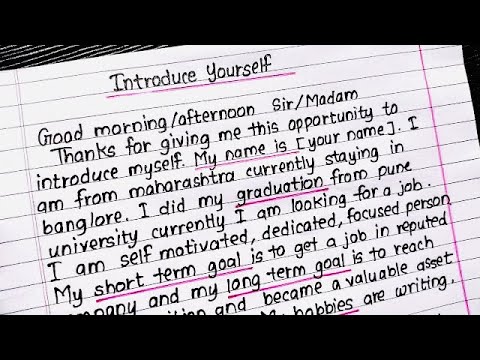 Introduce Yourself
Good morning/afternoon Sir/Madam
Thanks for giving me this opportunity to
introduce myself. My name is [your name]. I
am from maharashtra currently staying in
banglore. I did my graduation from pune
university currently I am looking for a job.
I am self motivated, dedicated, focused person
My short term goal is to get a job in reputed
company and my long term goal is to reach
and became a valuable asset
My hobbies are writing,